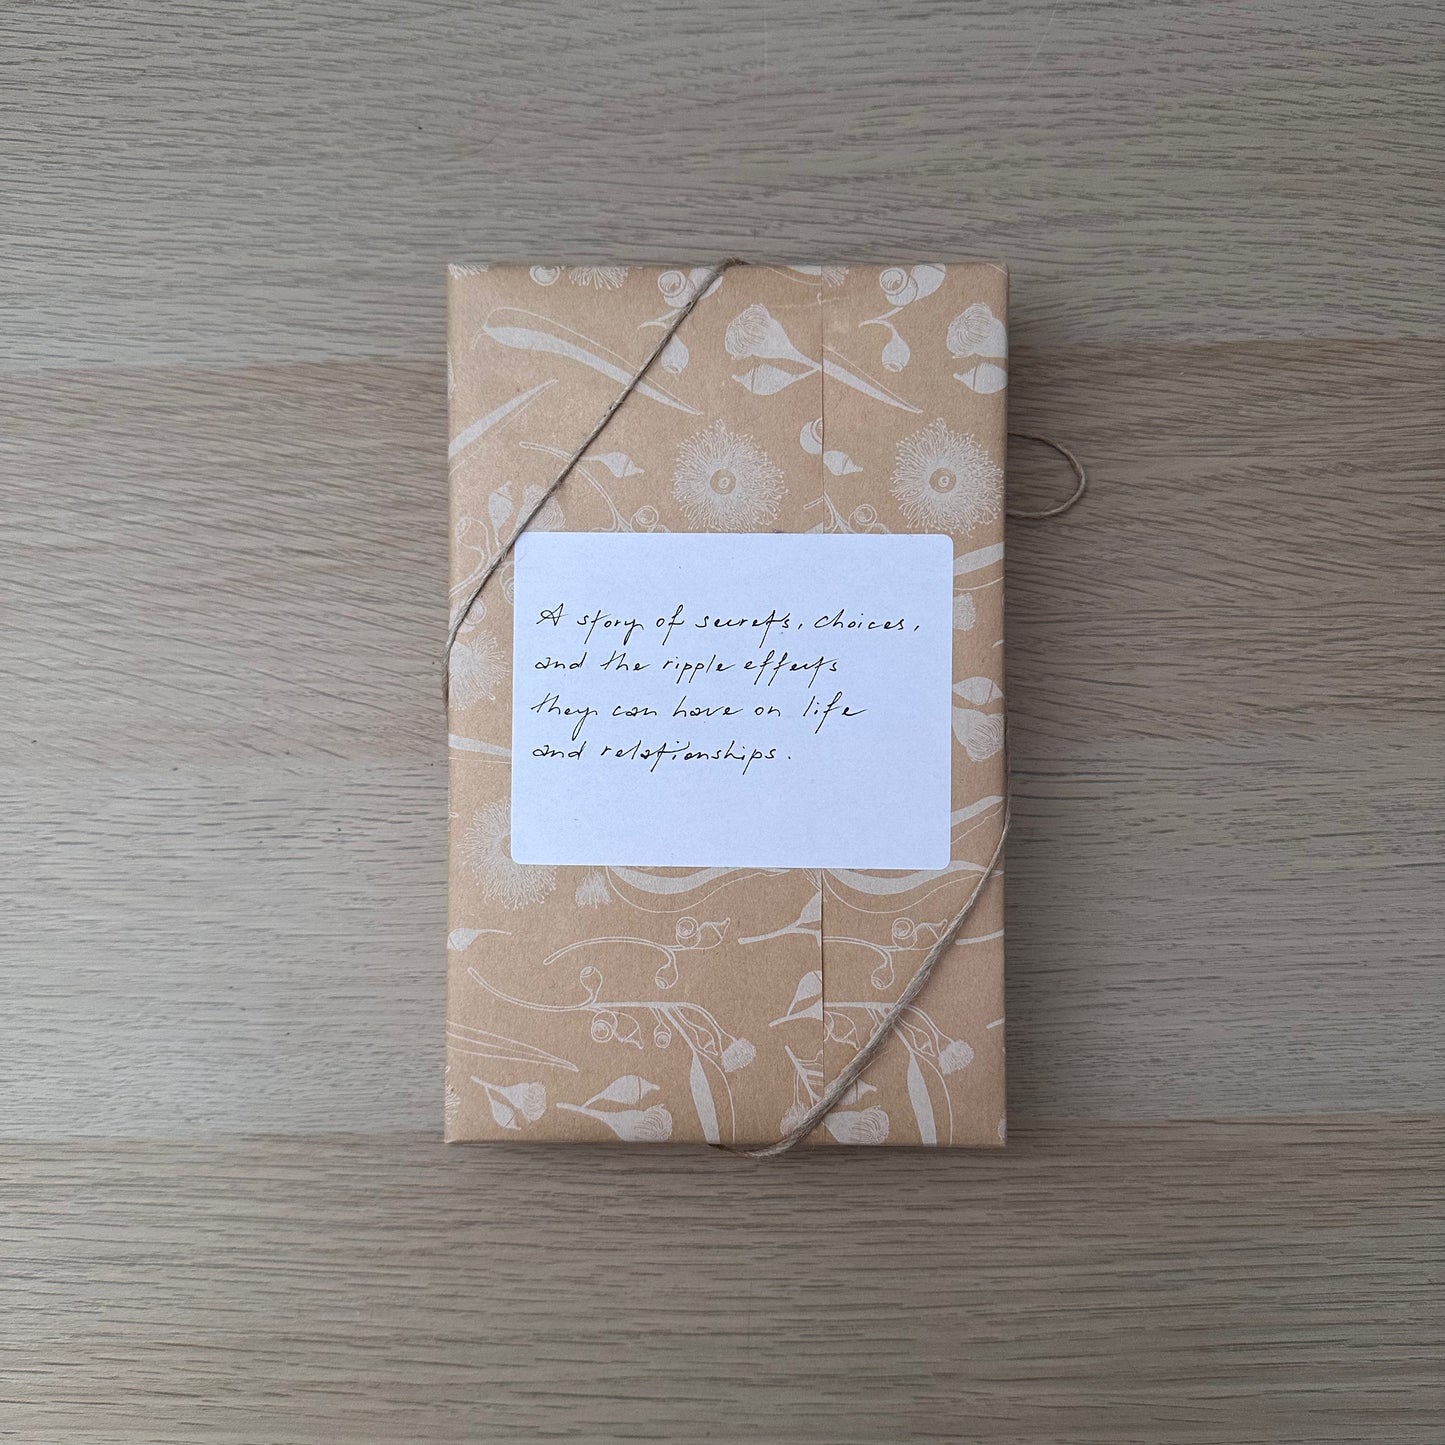 A story of secrets, choices,
and the ripple effects
they can have on life
and relationships.